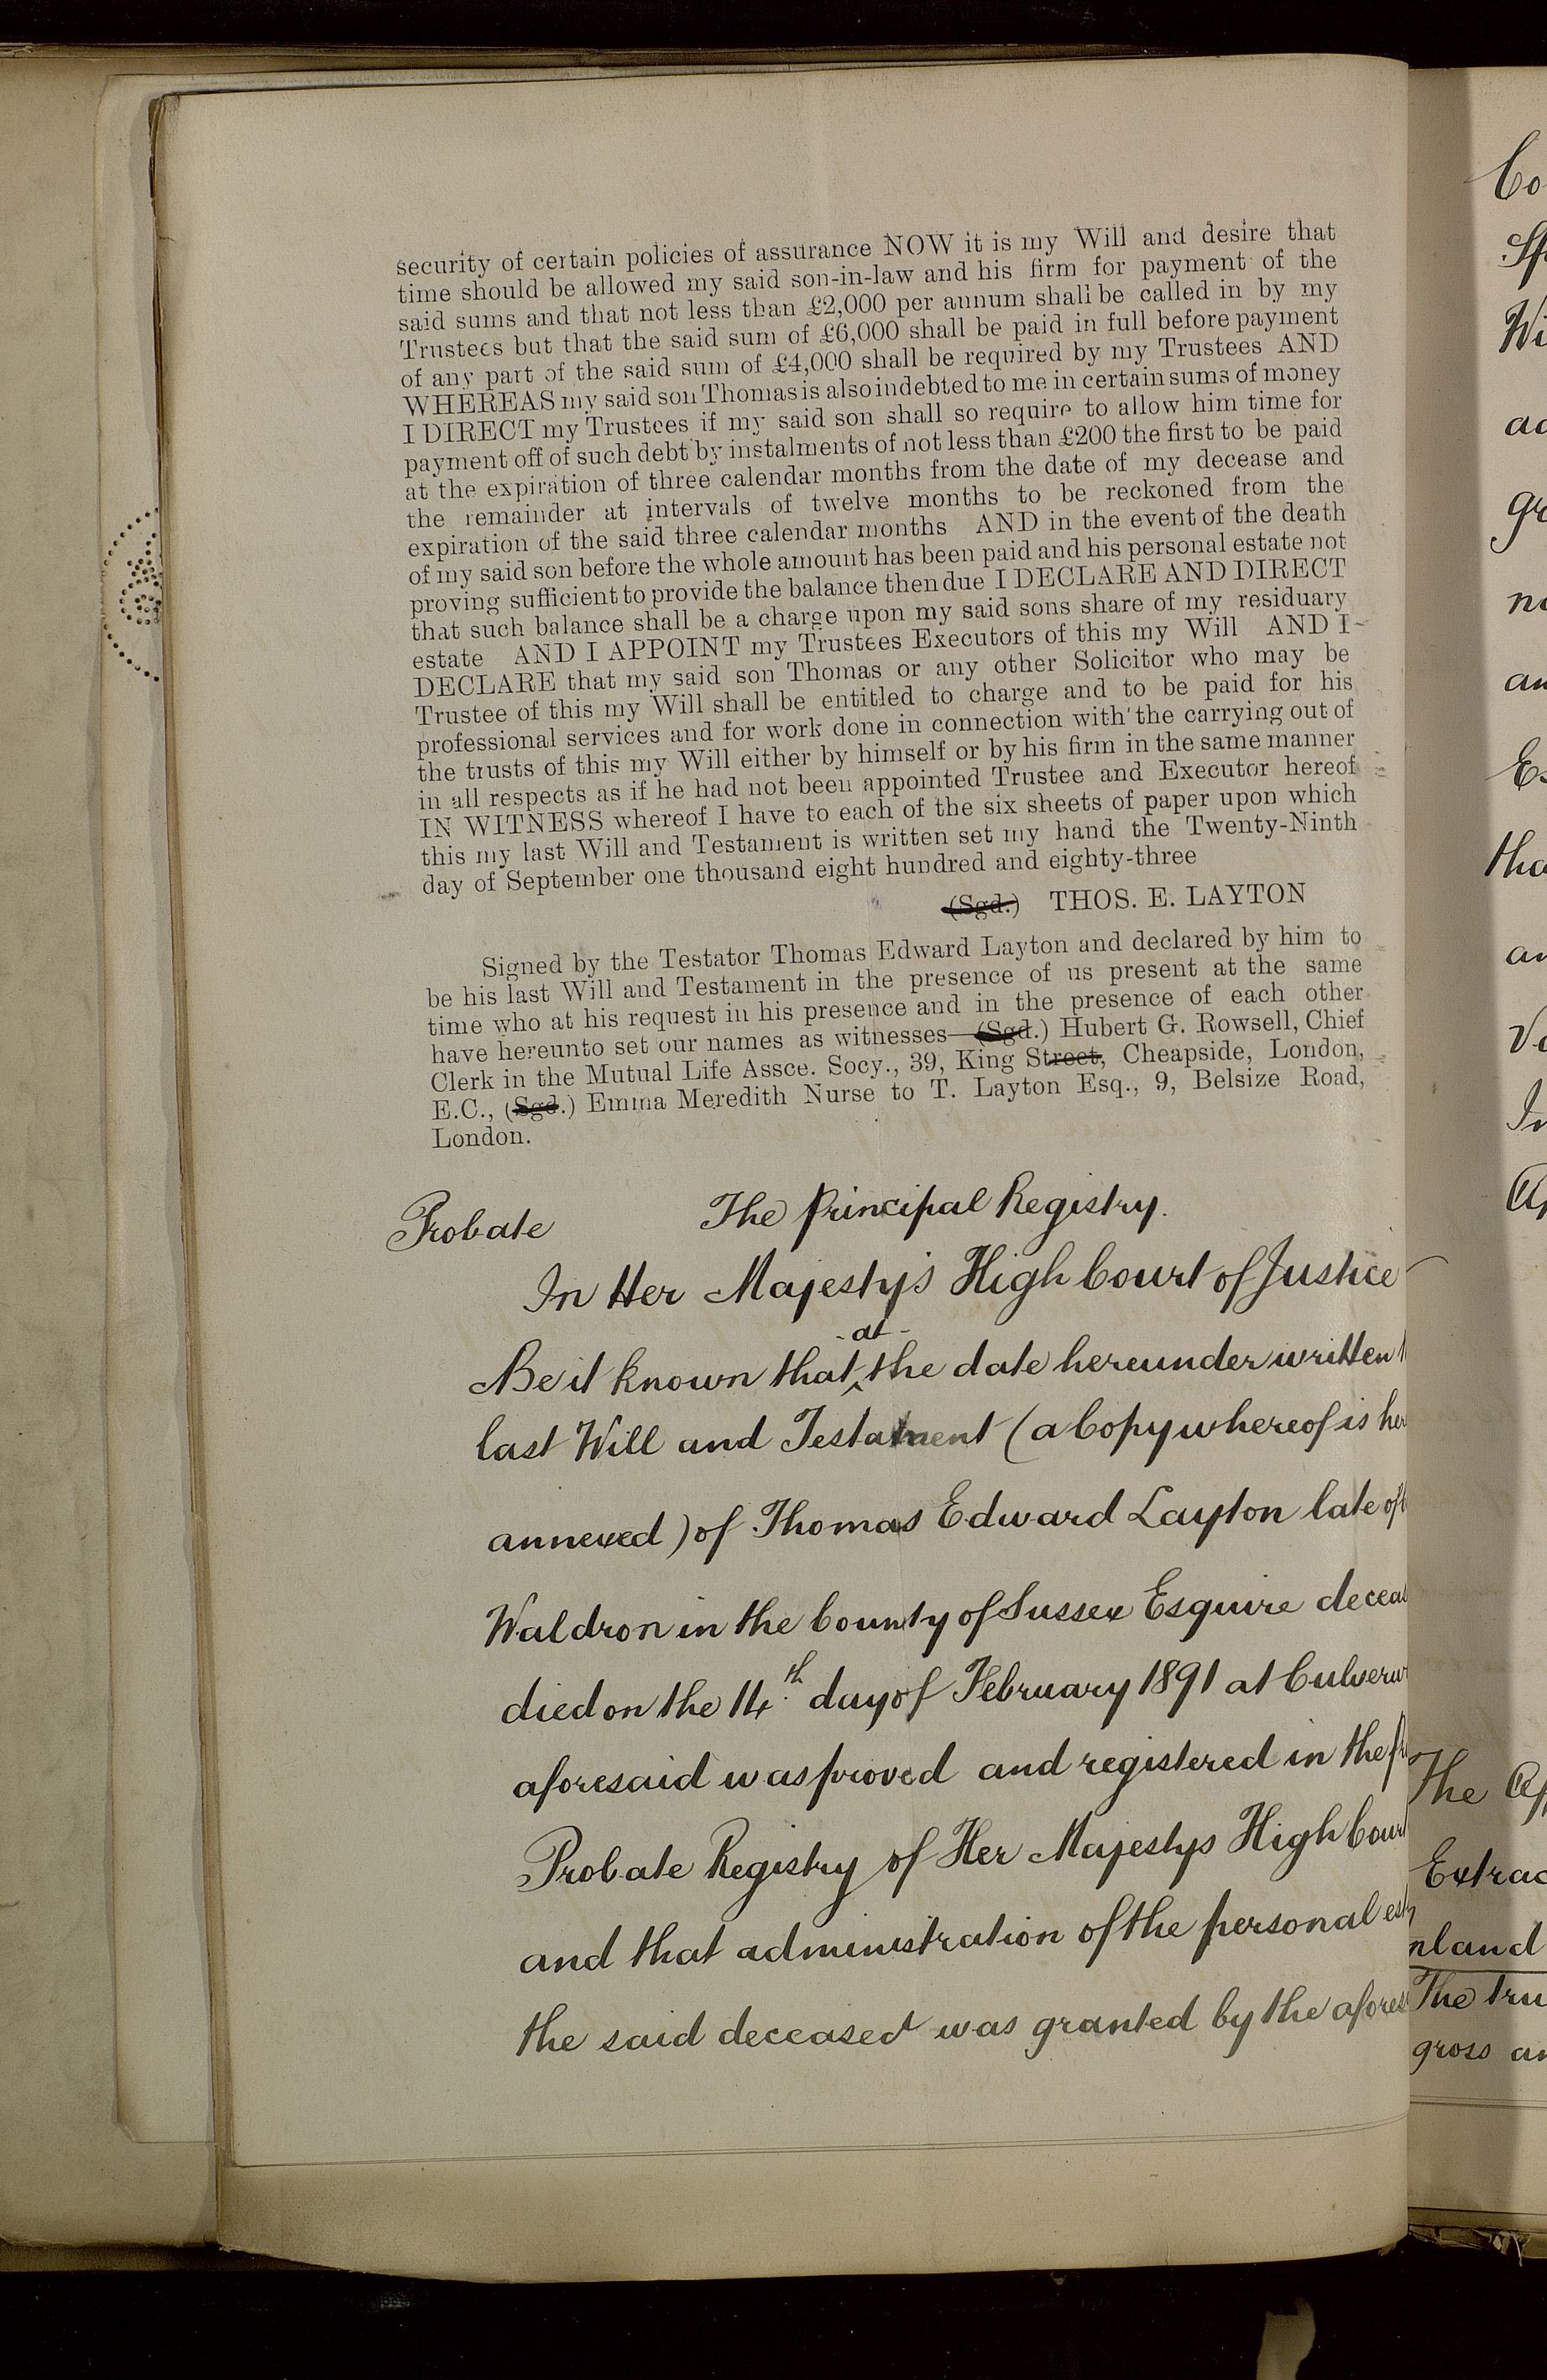 security of certain policies of assurance NOW it is my Will and desire that
time should be allowed my said son-in-law and his firm for payment of the
said sums and that not less than £2,000 per annum shall be called in by my
Trustees but that the said sum of £6,000 shall be paid in full before payment
of any part of the said sum of £4,000 shall be required by my Trustees AND
WHEREAS my said son Thomas is also indebted to me in certain sums of money
I DIRECT my Trustees if my said son shall so require to allow him time for
payment off of such debt by instalments of not less than £200 the first to be paid
at the expiration of three calendar months from the date of my decease and
the remainder at intervals of twelve months to be reckoned from the
expiration of the said three calendar months AND in the event of the death
of my said son before the whole amount has been paid and his personal estate not
proving sufficient to provide the balance then due I DECLARE AND DIRECT
that such balance shall be a charge upon my said sons share of my residuary
estate AND I APPOINT my Trustees Executors of this my Will AND I
DECLARE that my said son Thomas or any other Solicitor who may be
Trustee of this my Will shall be entitled to charge and to be paid for his
professional services and for work done in connection with the carrying out of
the trusts of this my Will either by himself or by his firm in the same manner
in all respects as if he had not been appointed Trustee and Executor hereof
IN WITNESS whereof I have to each of the six sheets of paper upon which
this my last Will and Testament is written set my hand the Twenty-Ninth
day of September one thousand eight hundred and eighty-three
(Sgd.) THOS. E. LAYTON
Signed by the Testator Thomas Edward Layton and declared by him to
be his last Will and Testament in the presence of us present at the same
time who at his request in his presence and in the presence of each other
have hereunto set our names as witnesses (Sgd.) Hubert G. Rowsell, Chief
Clerk in the Mutual Life Assce. Socy., 39, King Street, Cheapside, London,
E.C., (Sgd.) Emma Meredith Nurse to T. Layton Esq., 9, Belsize Road,
London.
Probate The Principal Registry.
In Her Majesty's High Court of Justice
Be it known that at the date hereunder written
last Will and Testament (a Copy whereof is
annexed) of Thomas Edward Layton late of
Waldron in the County of Sussex Esquire
died on the 14th day of February 1891 at
aforesaid was proved and registered in the
Probate Registry of Her Majestys High
and that administration of the personal
the said deceased was granted by the
The
gross